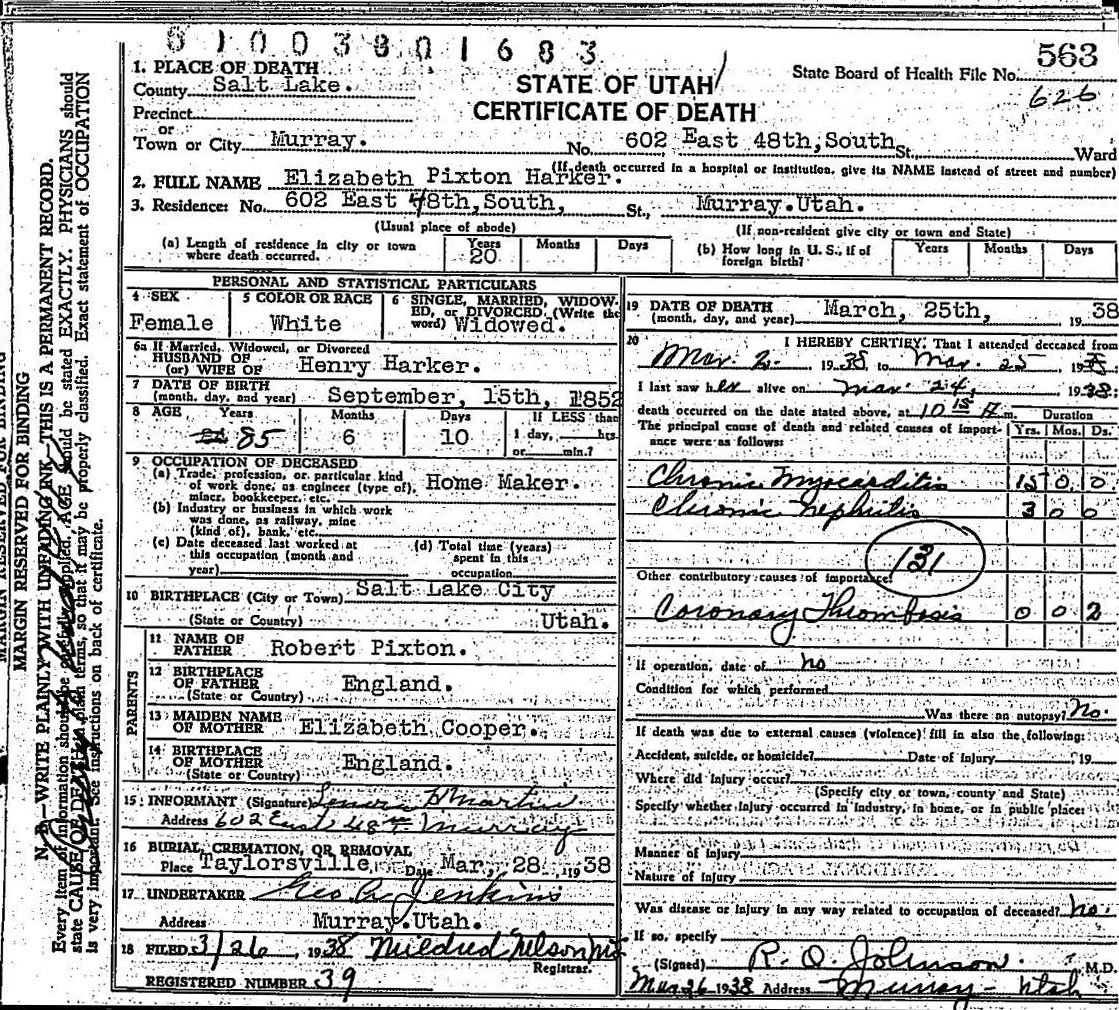 81003801683
563
State Board of Health File No.
626
STATE OF UTAH
CERTIFICATE OF DEATH
1. PLACE OF DEATH
County Salt Lake.
Precinct
or
Town or City Murray. No. 602 East 48th, South St., Ward
(If death occurred in a hospital or institution, give its NAME instead of street and number)
2. FULL NAME Elizabeth Pixton Harker.
3. Residence: No. 602 East 48th, South, St., Murray.Utah.
(Usual place of abode) (If non-resident give city or town and State)
(a) Length of residence in city or town where death occurred. Years 20 Months Days
(b) How long in U. S., if of foreign birth? Years Months Days
PERSONAL AND STATISTICAL PARTICULARS
4 SEX Female
5 COLOR OR RACE White
6 SINGLE, MARRIED, WIDOW-
ED, or DIVORCED. (Write the
word) Widowed.
6a If Married, Widowed, or Divorced
HUSBAND OF
(or) WIFE OF Henry Harker.
7 DATE OF BIRTH
(month, day, and year) September, 15th, 1852
8 AGE Years 85 Months 6 Days 10 If LESS than
1 day, hrs.
or min.?
9 OCCUPATION OF DECEASED
(a) Trade, profession, or particular kind
of work done, as engineer (type of), Home Maker.
miner, bookkeeper, etc.
(b) Industry or business in which work
was done, as railway, mine
(kind of), bank, etc.
(c) Date deceased last worked at
this occupation (month and
year)
(d) Total time (years)
spent in this
occupation
10 BIRTHPLACE (City or Town) Salt Lake City
(State or Country) Utah.
PARENTS
11 NAME OF
FATHER Robert Pixton.
12 BIRTHPLACE
OF FATHER England.
(State or Country)
13 MAIDEN NAME
OF MOTHER Elizabeth Cooper.
14 BIRTHPLACE
OF MOTHER England.
(State or Country)
15 INFORMANT (Signature) H Martin
Address 602 East 48th Murray
16 BURIAL, CREMATION, OR REMOVAL
Place Taylorsville Date Mar, 28, 1938
17 UNDERTAKER Geo A. Jenkins
Address Murray.Utah.
18 FILED 3/26, 1938 Mildred Nelson
Registrar.
REGISTERED NUMBER 39
19 DATE OF DEATH
(month, day, and year) March, 25th, 1938
20 I HEREBY CERTIFY, That I attended deceased from
Mar. 2. 1938 to Mar. 25 1938
I last saw her alive on Mar. 24, 1938;
death occurred on the date stated above, at 10 15 m. Duration
The principal cause of death and related causes of import-
ance were as follows: Yrs. Mos. Ds.
Chronic Myocarditis 15 0 0
Chronic Nephritis 3 0 0
131
Other contributory causes of importance:
Coronary Thrombosis 0 0 2
If operation, date of no
Condition for which performed
Was there an autopsy? No.
If death was due to external causes (violence) fill in also the following:
Accident, suicide, or homicide? Date of Injury 19
Where did injury occur?
(Specify city or town, county and State)
Specify whether injury occurred in industry, in home, or in public place:
Manner of injury
Nature of injury
Was disease or injury in any way related to occupation of deceased? no.
If so, specify
(Signed) R. O. Johnson. M.D.
Mar 26 1938 Address Murray - Utah
MARGIN RESERVED FOR BINDING
MARGIN RESERVED FOR BINDING
N. B.—WRITE PLAINLY WITH UNFADING INK—THIS IS A PERMANENT RECORD.
Every item of information should be carefully supplied. AGE should be stated EXACTLY. PHYSICIANS should
state CAUSE OF DEATH in plain terms, so that it may be properly classified. Exact statement of OCCUPATION
is very important. See instructions on back of certificate.